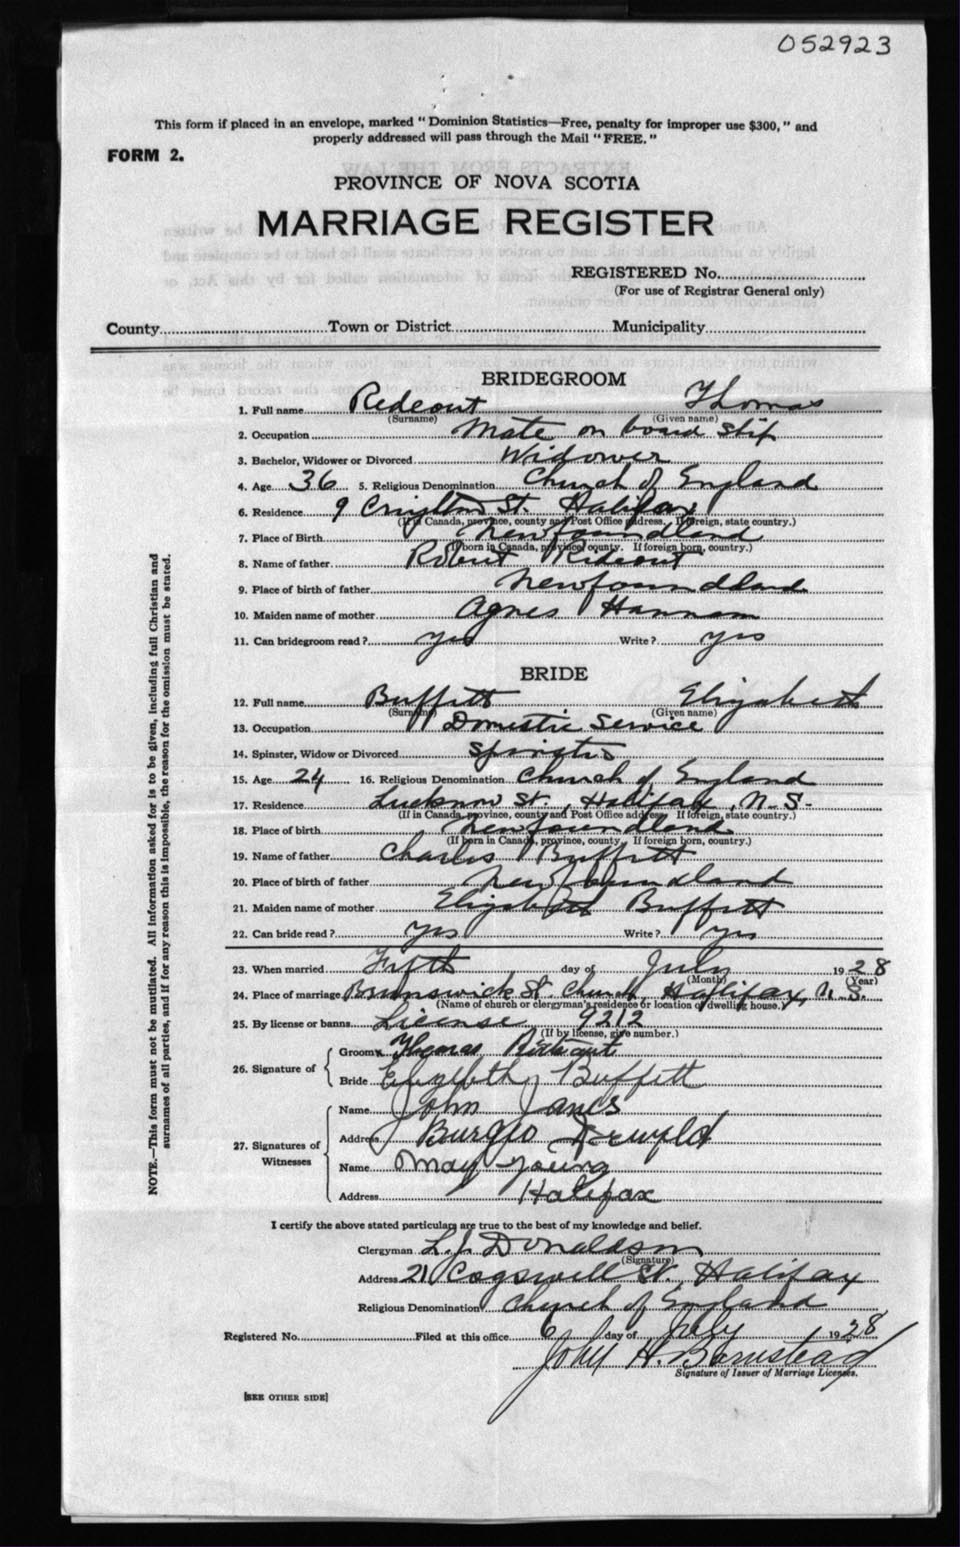 052923
This form if placed in an envelope, marked "Dominion Statistics—Free, penalty for improper use $300," and
properly addressed will pass through the Mail "FREE."
FORM 2.
PROVINCE OF NOVA SCOTIA
MARRIAGE REGISTER
REGISTERED No.
(For use of Registrar General only)
County Town or District Municipality
BRIDEGROOM
1. Full name Rideout Thomas
(Surname) (Given name)
2. Occupation Mate on board ship
3. Bachelor, Widower or Divorced Widower
4. Age 36 5. Religious Denomination Church of England
6. Residence 9 Creighton St. Halifax
(If in Canada, province, county and Post Office address. If foreign, state country.)
7. Place of Birth Newfoundland
(If born in Canada, province, county. If foreign born, country.)
8. Name of father Robert Rideout
9. Place of birth of father Newfoundland
10. Maiden name of mother Agnes Hannam
11. Can bridegroom read? yes Write? yes
BRIDE
12. Full name Buffett Elizabeth
(Surname) (Given name)
13. Occupation Domestic Service
14. Spinster, Widow or Divorced Spinster
15. Age 24 16. Religious Denomination Church of England
17. Residence Lucknow St., Halifax, N.S.
(If in Canada, province, county and Post Office address. If foreign, state country.)
18. Place of birth Newfoundland
(If born in Canada, province, county. If foreign born, country.)
19. Name of father Charles Buffett
20. Place of birth of father Newfoundland
21. Maiden name of mother Elizabeth Buffett
22. Can bride read? yes Write? yes
23. When married Fifth day of July 1928
(Month) (Year)
24. Place of marriage Brunswick St. Church, Halifax, N.S.
(Name of church or clergyman's residence or location of dwelling house.)
25. By license or banns License 9212
(If by license, give number.)
26. Signature of
Groom Thomas Rideout
Bride Elizabeth Buffett
27. Signatures of Witnesses
Name John Janes
Address Burgeo
Name May Young
Address Halifax
I certify the above stated particulars are true to the best of my knowledge and belief.
Clergyman L. J. Donaldson
(Signature)
Address 21 Cogswell St., Halifax
Religious Denomination Church of England
Registered No. Filed at this office 6 day of July 1928
John H. Barnstead
Signature of Issuer of Marriage Licenses.
[SEE OTHER SIDE]
NOTE.—This form must not be mutilated. All information asked for is to be given, including full Christian and
surnames of all parties, and if for any reason this is impossible, the reason for the omission must be stated.